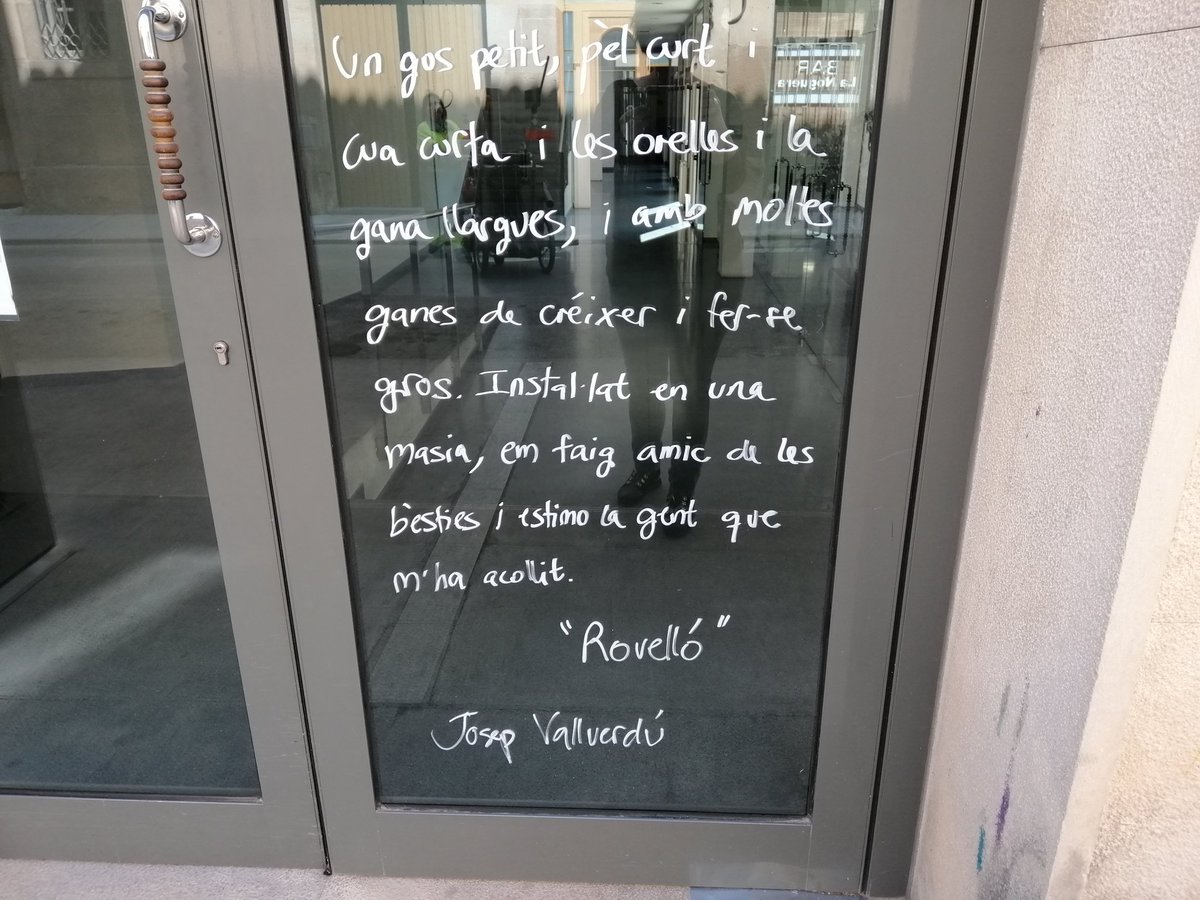 Un gos petit, pèl curt i
cua curta i les orelles i la
gana llargues, i amb moltes
ganes de créixer i fer-se
gros. Instal·lat en una
masia, em faig amic de les
bèsties i estimo la gent que
m'ha acollit.
"Rovelló"
Josep Vallverdú
BAR
La Noguera